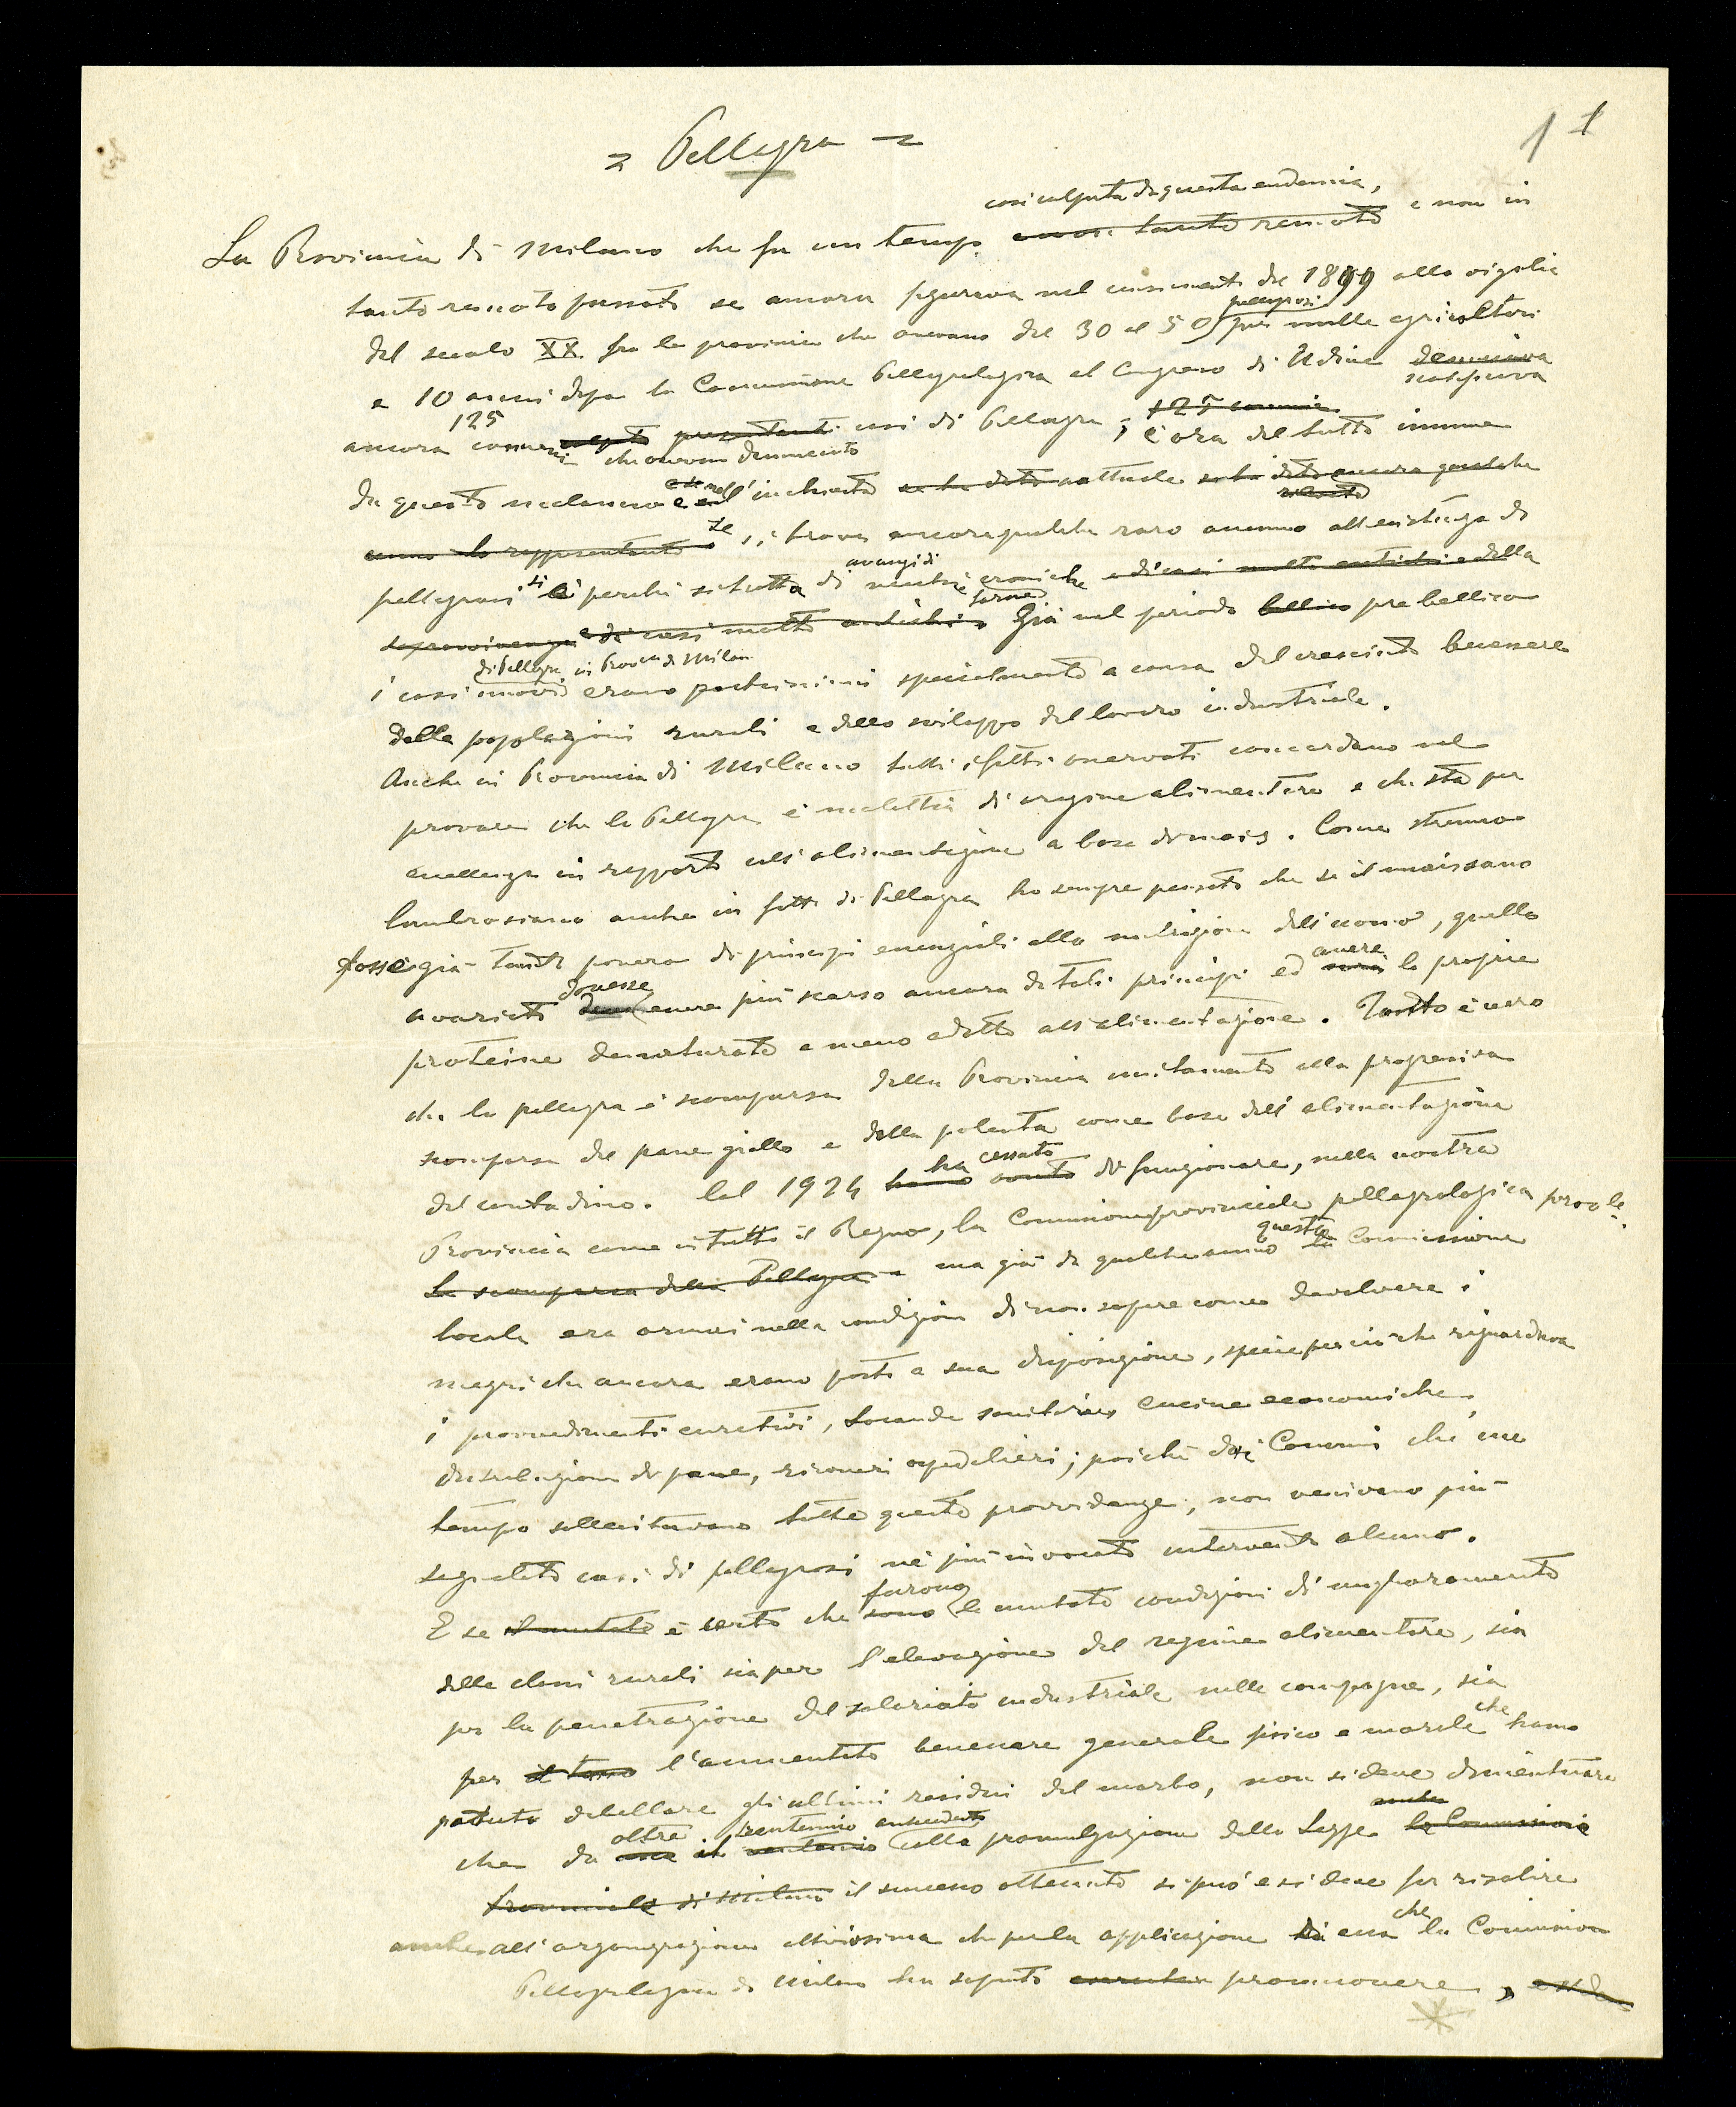 = Pellagra =
1 1
così colpita da questa endemia,
La Provincia di Milano che fu un tempo non tanto remoto e non in
tanto remoto passato se ancora figurava nel censimento del 1899 alla vigilia
del secolo XX fra le provincie che avevano dal 30 al 50 pellagrosi per mille agricoltori
e 10 anni dopo la Commissione Pellagrologica al Congresso di Udine denunciava
ancora 125 comuni colpiti presentanti che avevan denunciato casi di Pellagra, 125 comuni è ora del tutto immune
da questo malanno e se nell'inchiesta attuale se ha dato ancora qualche
anno lo rappresentante si trova ancora qualche raro accenno all'esistenza di
pellagrosi si è perché si tratta di avanzi di vecchie croniche e di casi molto antichi e della
sopravvivenza di casi molto antichi forme Già nel periodo bellico prebellico
di Pellagra in Prov. di Milano
i casi nuovi erano pochissimi specialmente a causa del cresciuto benessere
delle popolazioni rurali e dello sviluppo del lavoro industriale.
Anche in Provincia di Milano tutti i fatti osservati concordano nel
provare che la Pellagra è malattia di origine alimentare e che sta per
eccellenza in rapporto coll'alimentazione a base di mais. Come strenuo
Lombrosiano anche in fatto di Pellagra ho sempre pensato che se il mais sano
fosse già tanto povero di principi essenziali alla nutrizione dell'uomo, quello
avariato dovesse essere più scarso ancora di tali principi ed avere le proprie
proteine denaturate e meno adatte all'alimentazione. Tanto è vero
che la pellagra è scomparsa dalla Provincia unitamente alla progressiva
scomparsa del pane giallo e della polenta come base dell'alimentazione
del contadino. Col 1924 ha cessato di funzionare, nella nostra
Provincia come in tutto il Regno, la Commissione provinciale pellagrologica prov.le
La scomparsa della Pellagra ma già da qualche anno questa la Commissione
locale era ormai nella condizione di non sapere come devolvere i
mezzi che ancora erano posti a sua disposizione, specie per ciò che riguardava
i provvedimenti curativi, Locande sanitarie, Cucine economiche,
distribuzione di pane, ricoveri ospedalieri; poichè dai Comuni che un
tempo sollecitavano tutte queste provvidenze, non venivano più
segnalati casi di pellagrosi nè più invocato intervento alcuno.
E se il mutato è certo che furono sono le mutate condizioni di miglioramento
delle classi rurali sia per l'elevazione del regime alimentare, sia
per la penetrazione del salariato industriale nelle campagne, sia
per l'aumentato benessere generale fisico e morale che hanno
potuto debellare gli ultimi residui del morbo, non si deve dimenticare
che da oltre un ventennio antecedente alla promulgazione della Legge anche la Commissione
Provinciale di Milano il successo ottenuto si può e si deve far risalire
anche all'organizzazione attivissima che per la applicazione di essa che la Commissione
Pellagrologica di Milano ha saputo promuovere,